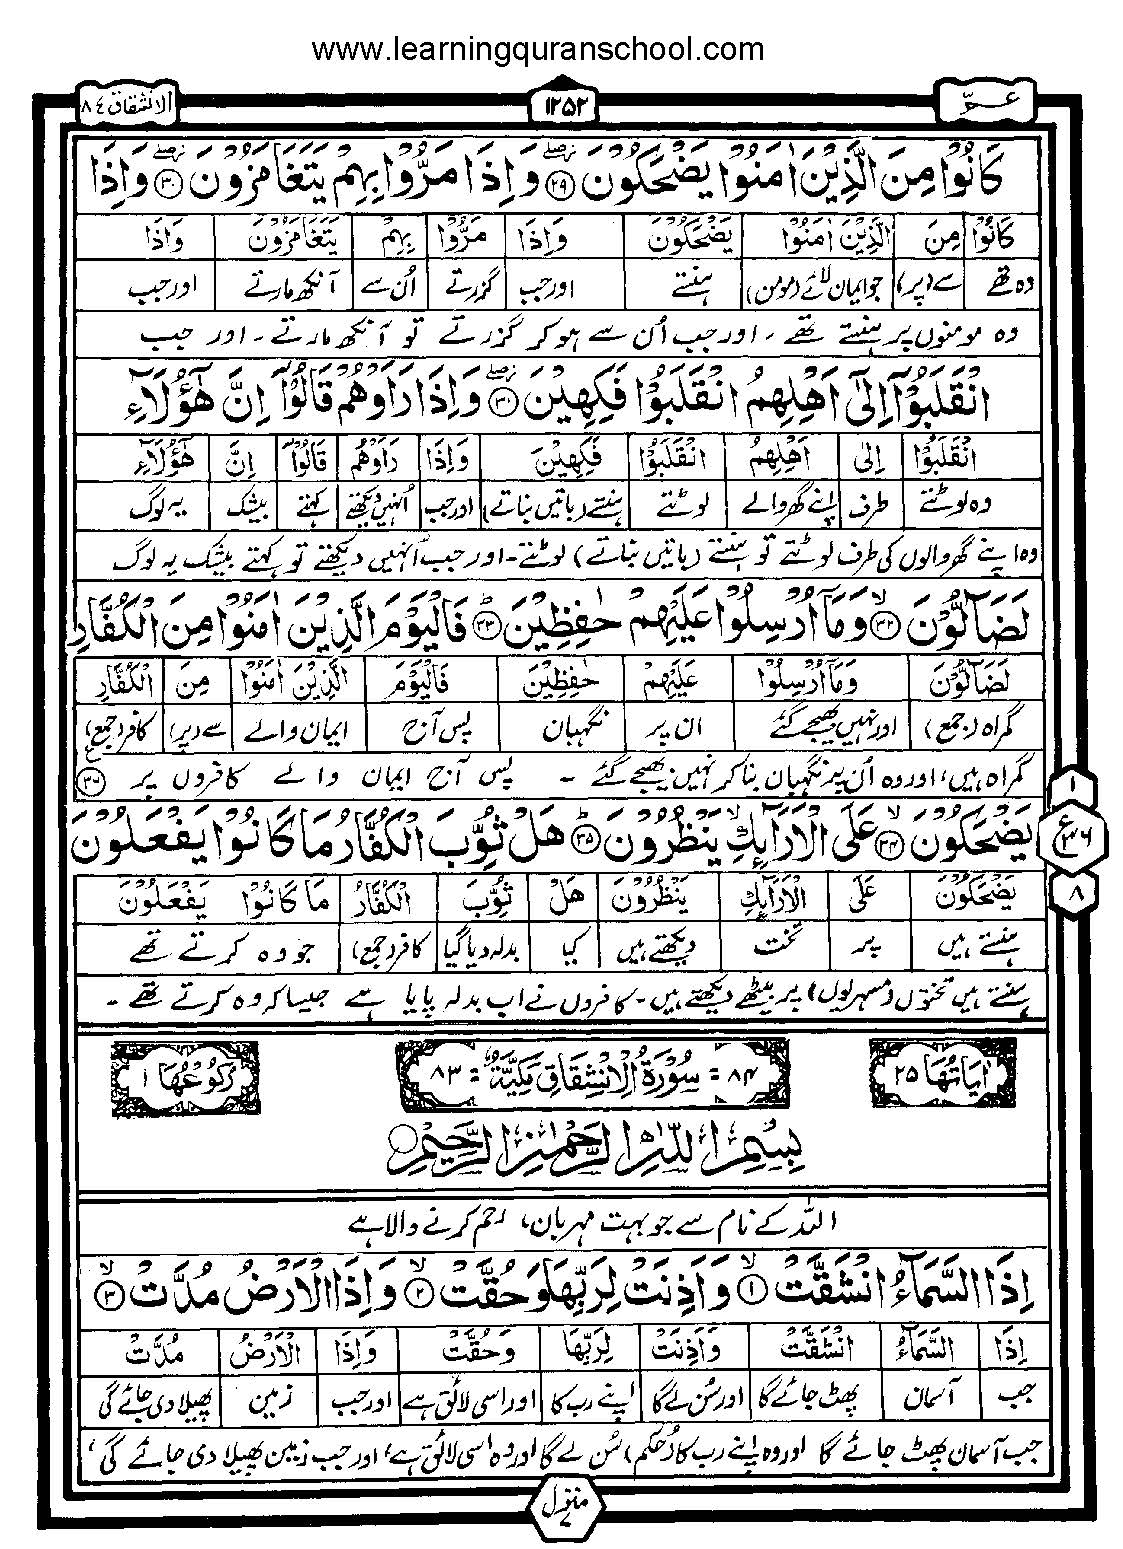 www.learningquranschool.com
الانشقاق ٨٤
١٢٥٢
عم
كَانُوْا مِنَ الَّذِيْنَ اٰمَنُوْا يَضْحَكُوْنَ ۟ۖ ٢٩ وَاِذَا مَرُّوْا بِهِمْ يَتَغَامَزُوْنَ ۟ۖ ٣٠ وَاِذَا
كَانُوْا مِنَ الَّذِيْنَ اٰمَنُوْا يَضْحَكُوْنَ وَاِذَا مَرُّوْا بِهِمْ يَتَغَامَزُوْنَ وَاِذَا
وہ تھے سے (پر) جو ایمان لائے (مومن) ہنستے اور جب گزرتے اُن سے آنکھ مارتے اور جب
وہ مومنوں پر ہنستے تھے ۔ اور جب اُن سے ہو کر گزرتے تو آنکھ مارتے ۔ اور جب
انْقَلَبُوْٓا اِلٰٓى اَهْلِهِمُ انْقَلَبُوْا فَكِهِيْنَ ۖ ٣١ وَاِذَا رَاَوْهُمْ قَالُوْٓا اِنَّ هٰٓؤُلَآءِ
انْقَلَبُوْٓا اِلٰى اَهْلِهِمُ انْقَلَبُوْا فَكِهِيْنَ وَاِذَا رَاَوْهُمْ قَالُوْٓا اِنَّ هٰٓؤُلَآءِ
وہ لوٹتے طرف اپنے گھر والے لوٹتے ہنستے (باتیں بناتے) اور جب اُنہیں دیکھتے کہتے بیشک یہ لوگ
وہ اپنے گھر والوں کی طرف لوٹتے تو ہنستے (باتیں بناتے) لوٹتے ۔ اور جب اُنہیں دیکھتے تو کہتے بیشک یہ لوگ
لَضَآلُّوْنَ ۙ ٣٢ وَمَآ اُرْسِلُوْا عَلَيْهِمْ حٰفِظِيْنَ ؕ ٣٣ فَالْيَوْمَ الَّذِيْنَ اٰمَنُوْا مِنَ الْكُفَّارِ
لَضَآلُّوْنَ وَمَآ اُرْسِلُوْا عَلَيْهِمْ حٰفِظِيْنَ فَالْيَوْمَ الَّذِيْنَ اٰمَنُوْا مِنَ الْكُفَّارِ
گمراہ (جمع) اور نہیں بھیجے گئے ان پر نگہبان پس آج ایمان والے سے (پر) کافر (جمع)
گمراہ ہیں، اور وہ اُن پر نگہبان بنا کر نہیں بھیجے گئے ۔ پس آج ایمان والے کافروں پر
يَضْحَكُوْنَ ۙ ٣٤ عَلَى الْاَرَآئِكِ ۙ يَنْظُرُوْنَ ؕ ٣٥ هَلْ ثُوِّبَ الْكُفَّارُ مَا كَانُوْا يَفْعَلُوْنَ ٣٦
يَضْحَكُوْنَ عَلَى الْاَرَآئِكِ يَنْظُرُوْنَ هَلْ ثُوِّبَ الْكُفَّارُ مَا كَانُوْا يَفْعَلُوْنَ
ہنستے ہیں پر تخت دیکھتے ہیں کیا بدلہ دیا گیا کافر (جمع) جو وہ کرتے تھے
ہنستے ہیں تختوں (مسہریوں) پر بیٹھے دیکھتے ہیں ۔ کافروں نے اب بدلہ پایا ہے جیسا کہ وہ کرتے تھے ۔
١
ع ٣٦
٨
اٰيَاتُهَا ٢٥
٨٤ = سُوْرَةُ الْاِنْشِقَاقِ مَكِّيَّةٌ = ٨٣
رُكُوْعُهَا ١
بِسْمِ اللّٰهِ الرَّحْمٰنِ الرَّحِيْمِ
اللہ کے نام سے جو بہت مہربان، رحم کرنے والا ہے
اِذَا السَّمَآءُ انْشَقَّتْ ۙ ١ وَاَذِنَتْ لِرَبِّهَا وَحُقَّتْ ۙ ٢ وَاِذَا الْاَرْضُ مُدَّتْ ۙ ٣
اِذَا السَّمَآءُ انْشَقَّتْ وَاَذِنَتْ لِرَبِّهَا وَحُقَّتْ وَاِذَا الْاَرْضُ مُدَّتْ
جب آسمان پھٹ جائے گا اور سُن لے گا اپنے رب کا اور اسی لائق ہے اور جب زمین پھیلا دی جائے گی
جب آسمان پھٹ جائے گا اور وہ اپنے رب کا (حکم) سُن لے گا اور وہ اسی لائق ہے، اور جب زمین پھیلا دی جائے گی،
منزل ٧